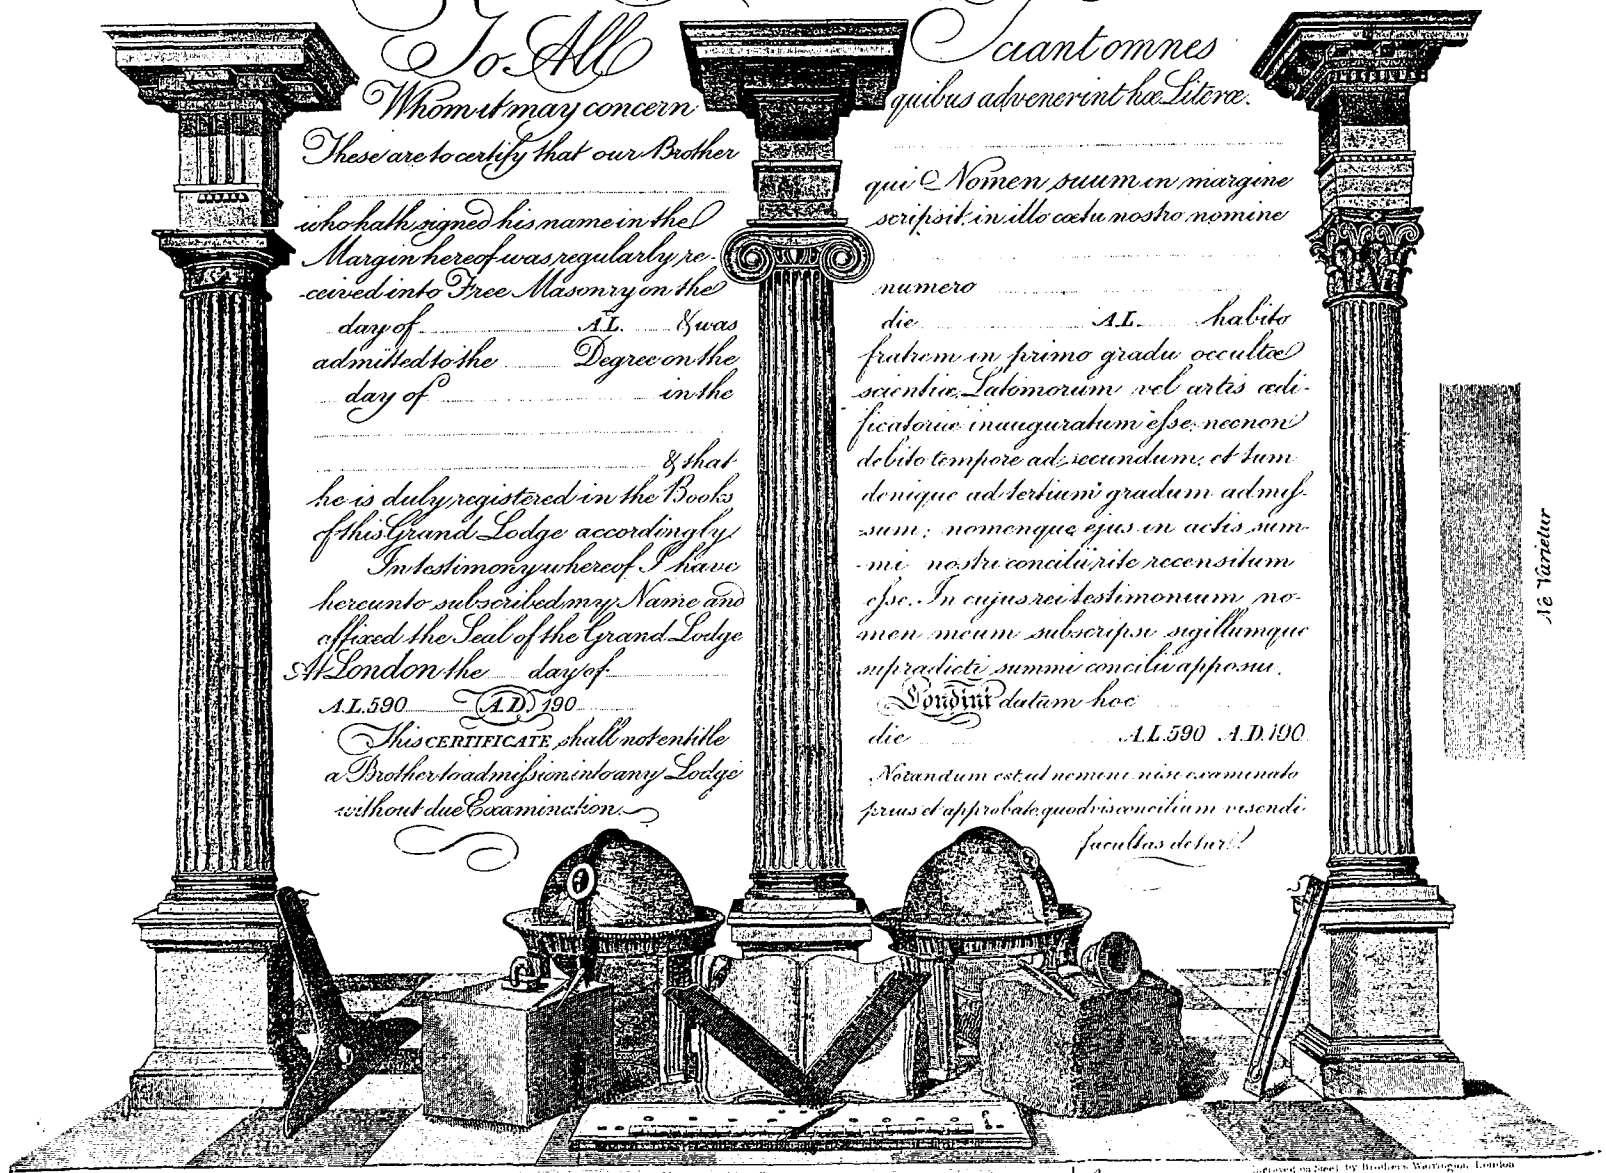 To All
Whom it may concern
These are to certify that our Brother
who hath signed his name in the
Margin hereof was regularly re-
-ceived into Free Masonry on the
day of A.L. & was
admitted to the Degree on the
day of in the
& that
he is duly registered in the Books
of this Grand Lodge accordingly
In testimony whereof I have
hereunto subscribed my Name and
affixed the Seal of the Grand Lodge
At London the day of
A.L. 590 A.D. 190
This CERTIFICATE shall not entitle
a Brother to admission into any Lodge
without due Examination.
Sciant omnes
quibus advenerint hæ Literæ.
qui Nomen suum in margine
scripsit, in illo cœtu nostro nomine
numero
die A.L. habito
fratrem in primo gradu occultæ
scientiæ Latomorum vel artis ædi-
ficatoriæ inauguratum esse; necnon
debito tempore ad secundum, et tum
denique ad tertium gradum admis-
-sum; nomenque ejus in actis sum-
-mi nostri concilii rite recensitum
esse. In cujus rei testimonium no-
men meum subscripsi sigillumque
supradicti summi concilii apposui.
Londini datum hoc
die A.L. 590 A.D. 190
Notandum est, ut nemini nisi examinato
prius et approbato quodvis concilium visendi
facultas detur!!
Ne Varietur
Engraved on Steel by Brothers Warrington, London